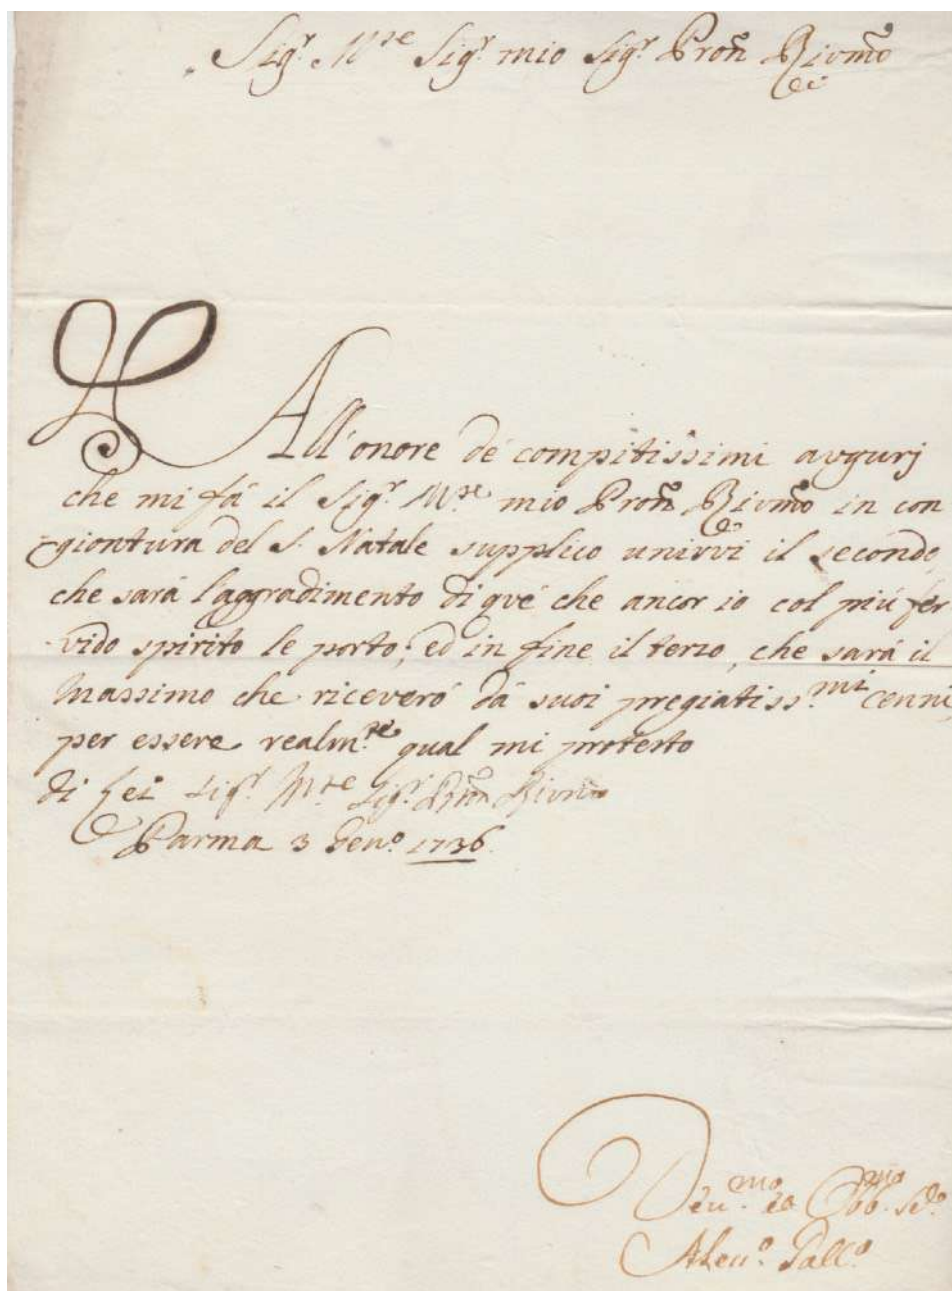 Sig.r M.se Sig.r mio Sig.r Pron Rivmo
All'onore dé compitissimi avgurj
che mi fá il Sig.r M.se mio Pron Rivmo in con
giontura del S. Natale supplico unirvi il secondo
che sará l'aggradimento di qvé che ancor io col piú fer
vido spirito le porto; ed in fine il terzo, che sará il
Massimo che riceveró dá suoi pregiatiss.mi cenni
per essere realm.te qual mi protesto
di Lei Sig.r M.se Sig.r Pron Rivmo
Parma 3 Gen.o 1736.
Deu.mo ed Obb.mo Se.o